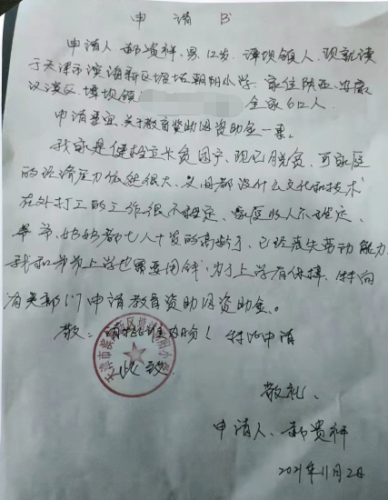 申请书
申请人郝贵祥,男12岁,谭坝镇人,现就读
于天津市滨海新区塘沽朝阳小学,家住陕西,安康
汉滨区,谭坝镇 全家6口人
申请事宜,关于教育资助困资助金一事。
我家是健档立卡贫困户,现已脱贫,可家庭
的经济压力依然很大,父母都没什么文化和技术
在外打工的工作很不稳定,家庭收入不稳定、
爷爷、奶奶都七八十岁的高龄了,已经丧失劳动能力,
我和弟弟上学也需要用钱,为了上学有保障,特向
有关部门申请教育资助困资助金。
敬:请给准为盼!特此申请
此致
敬礼
申请人、郝贵祥
2021年11月2日
天津市滨